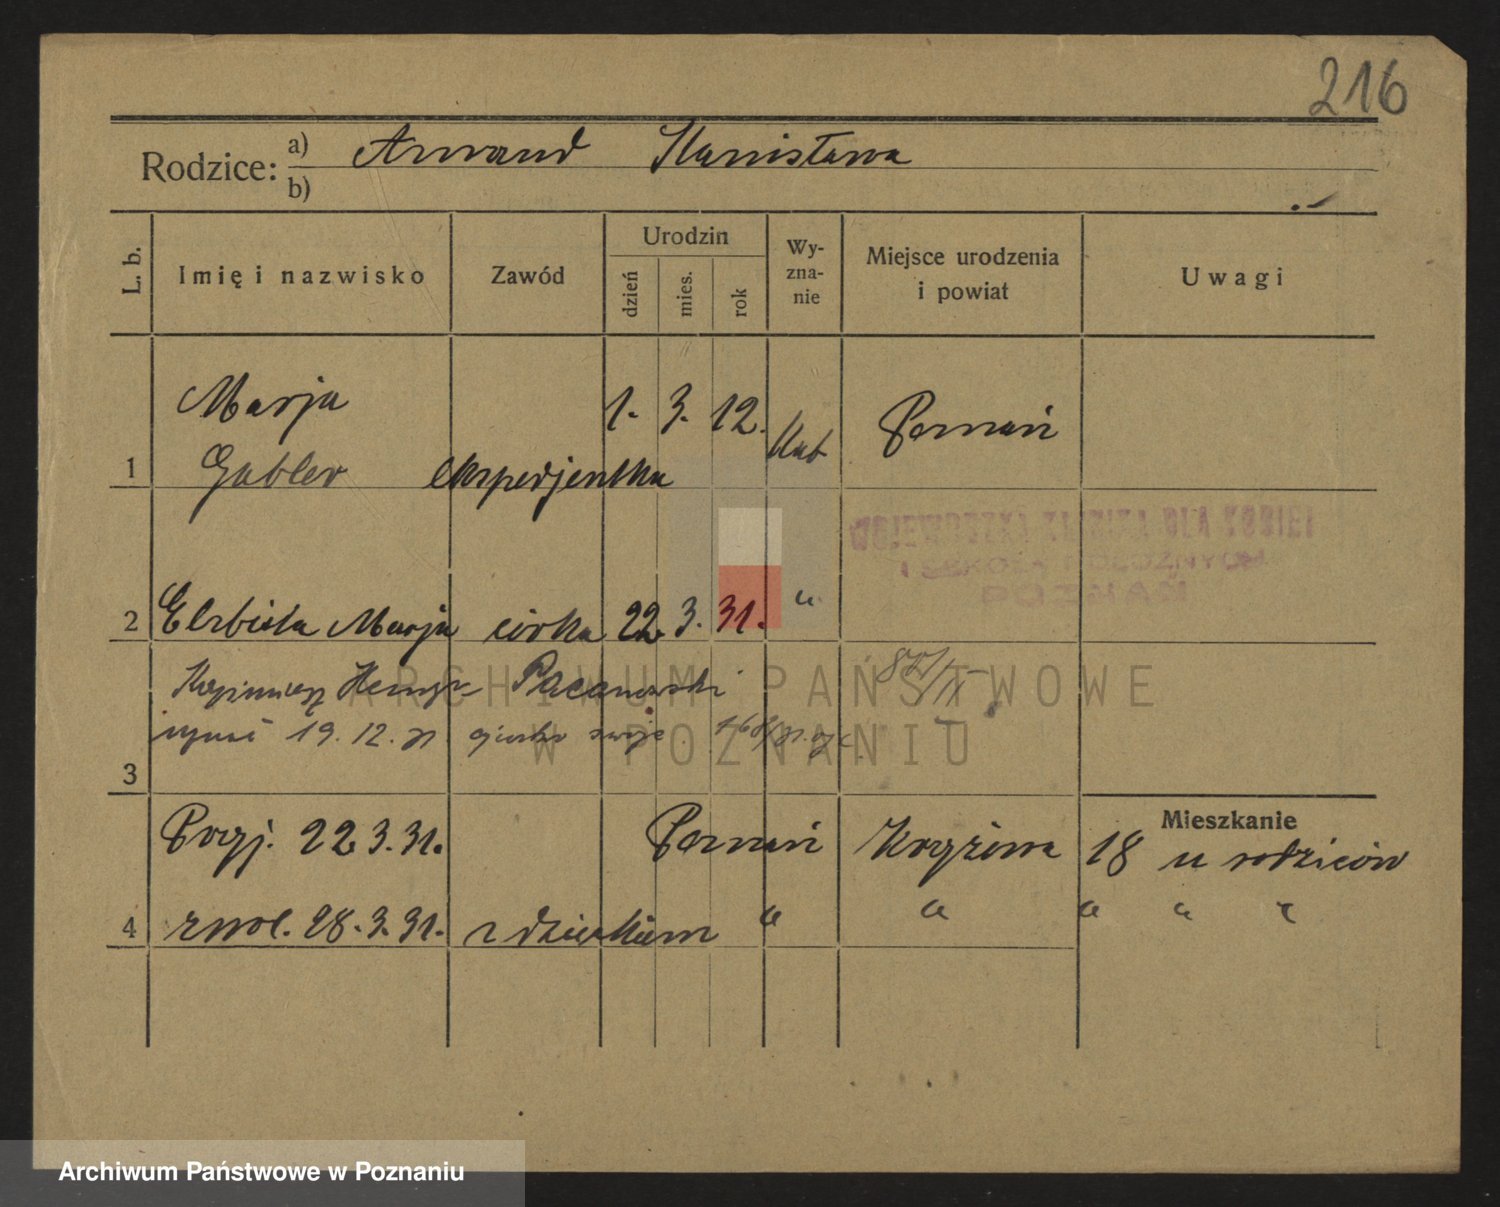 216
Rodzice: a) Armand Stanisława
b)
L. b. Imię i nazwisko Zawód Urodzin dzień mies. rok Wy-zna-nie Miejsce urodzenia i powiat Uwagi
Marja 1. 3. 12. Kat Poznań
1 Gabler ekspedjentka
WOJEWÓDZKA KLINIKA DLA KOBIET
I SZKOŁA POŁOŻNYCH
POZNAŃ
2 Elżbieta Marja córka 22. 3. 31. "
Kazimierz Pacanowski
19. 12. 31 swoje
3
Mieszkanie
Przyj. 22.3.31. Poznań 18 u rodziców
4 zwol. 28.3.31. z dzieckiem " " " " "
ARCHIWUM PAŃSTWOWE
W POZNANIU
Archiwum Państwowe w Poznaniu